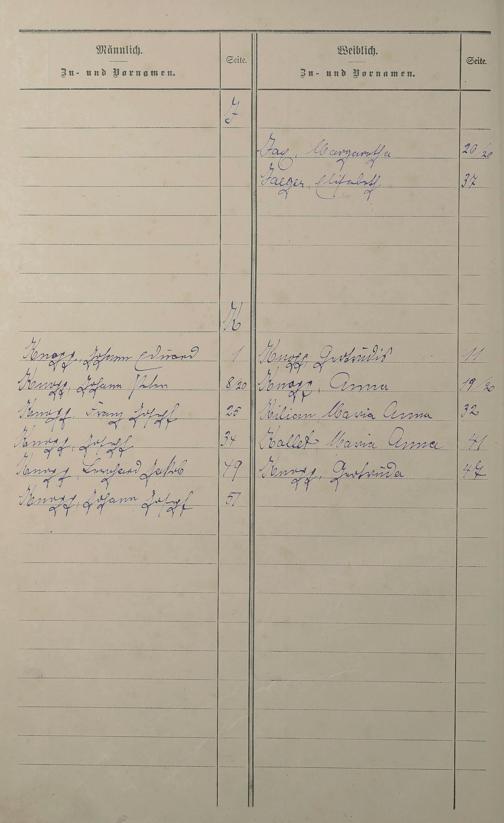 Männlich.
Zu- und Vornamen.
Seite.
Weiblich.
Zu- und Vornamen.
Seite.
J
Jax, Margaretha 20 20
Jaeger, Elisabeth 37
K
Knopp, Johann Eduard 1
Knopp, Gertrudis 11
Knopp, Johann Peter 8 20
Knopp, Anna 19 20
Knopp, Franz Joseph 25
Kilian Maria Anna 32
Knopp, Joseph 34
Kallet Maria Anna 41
Knopp, Bernhard Jakob 49
Knopp, Gertruda 47
Knopp, Johann Joseph 51